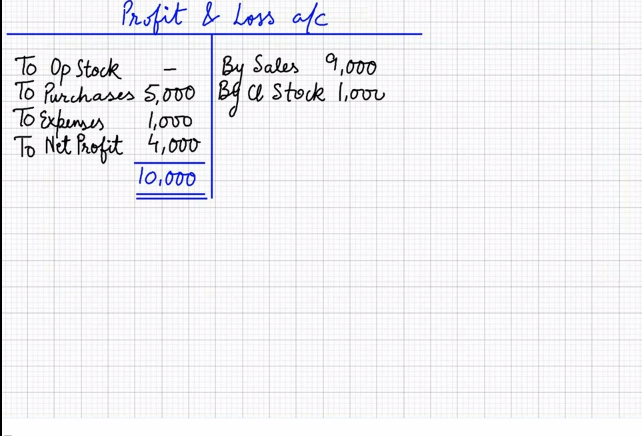 Profit & Loss a/c
To Op Stock –
To Purchases 5,000
To Expenses 1,000
To Net Profit 4,000
10,000
By Sales 9,000
By Cl Stock 1,000